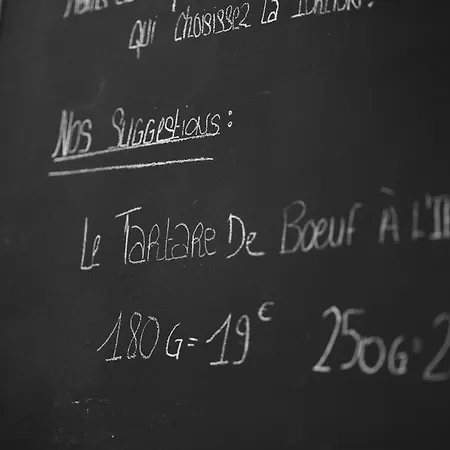 qui choisissez la
Nos Suggestions:
Le Tartare De Boeuf À L'I
180G=19€ 250G=2